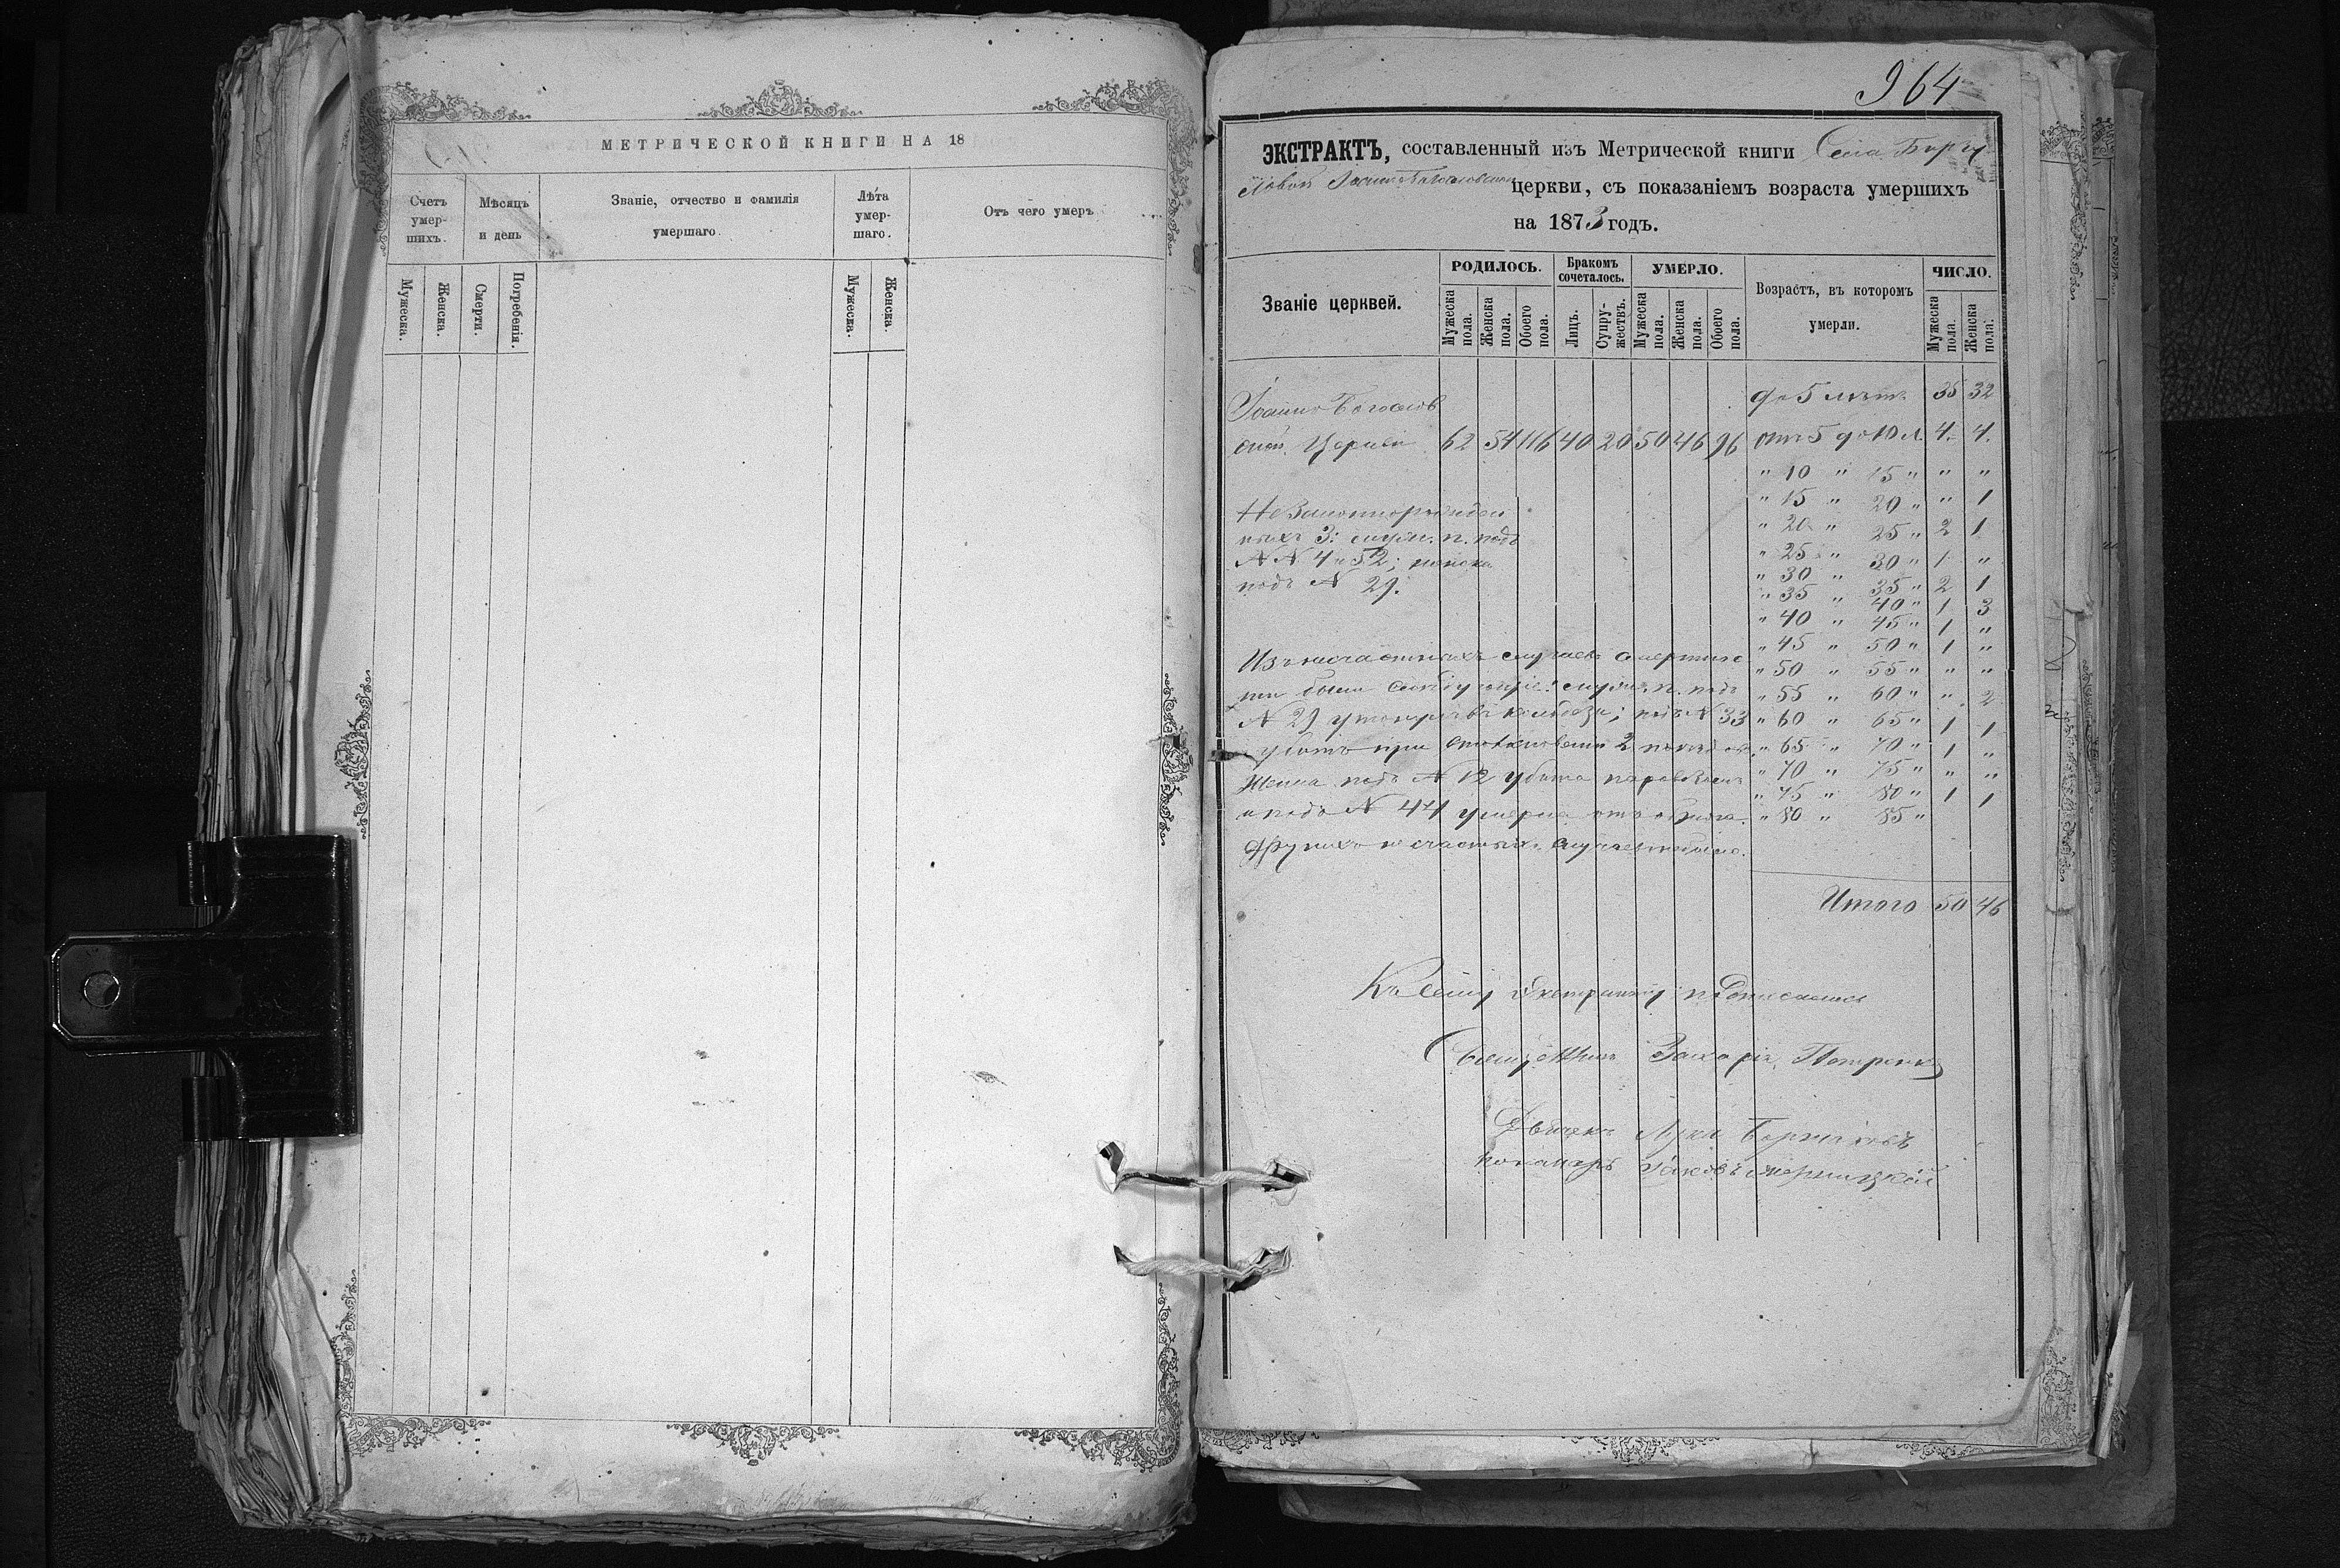 МЕТРИЧЕСКОЙ КНИГИ НА 18
Счетъ умер-шихъ.
Мѣсяцъ и день
Званіе, отчество и фамилія умершаго.
Лѣта умер-шаго.
Отъ чего умеръ
Мужеска.
Женска.
Смерти.
Погребенія.
Мужеска.
Женска.
964
ЭКСТРАКТЪ, составленный изъ Метрической книги Села
церкви, съ показаніемъ возраста умершихъ
на 1873 годъ.
Званіе церквей.
РОДИЛОСЬ.
Бракомъ сочеталось.
УМЕРЛО.
Возрастъ, въ которомъ умерли.
ЧИСЛО.
Мужеска пола.
Женска пола.
Обоего пола.
Лицъ.
Супру-жествъ.
Мужеска пола.
Женска пола.
Обоего пола.
Мужеска пола.
Женска пола.
до 5 лѣтъ 35 32
Іоанно Богослов
ской Церкви 62 54 116 40 20 50 46 96 отъ 5 до 10 л. 4. 4.
" 10 " 15 " " "
" 15 " 20 " " 1
" 20 " 25 " 2 1
" 25 " 30 " 1 "
" 30 " 35 " 2 1
" 35 " 40 " 1 3
" 40 " 45 " 1 "
" 45 " 50 " 1 "
" 50 " 55 " " "
" 55 " 60 " " 2
" 60 " 65 " 1 1
" 65 " 70 " 1 "
" 70 " 75 " " "
" 75 " 80 " 1 1
" 80 " 85 "
Незаконнорожден
ныхъ 3: муж. п. подъ
N N 4 и 52; женска
подъ N 29.
Изъ несчастныхъ случаевъ
были слѣдующіе: муж. п. подъ
N 29 утонулъ въ колодези; подъ N 33
убитъ при столкновеніи 2 поѣздовъ
Женска подъ N 12 убита паровозомъ
и подъ N 44 умерла отъ
Другихъ несчастныхъ случаевъ не было.
Итого 50 46
Къ сему Экстракту подписались
Священникъ Захарія Петренко
Дьячокъ Лука
Пономарь Іаковъ